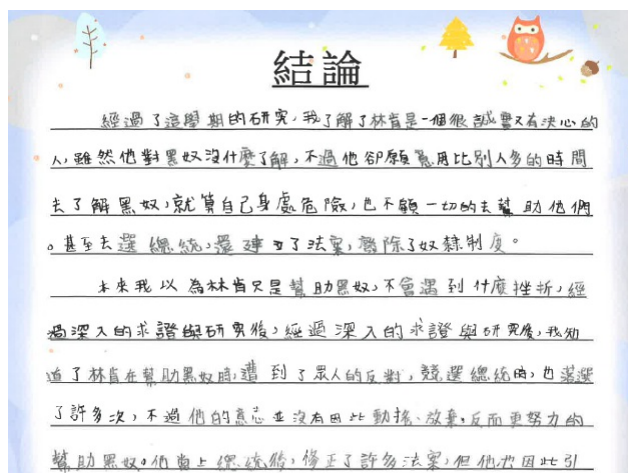 結論
經過了這學期的研究，我了解了林肯是一個很誠實又有決心的
人，雖然他對黑奴沒什麼了解，不過他卻願意用比別人多的時間
去了解黑奴，就算自己身處危險，也不顧一切的去幫助他們
。甚至去選總統，還建立了法案，廢除了奴隸制度。
本來我以為林肯只是幫助黑奴，不會遇到什麼挫折，經
過深入的求證與研究後，經過深入的求證與研究後，我知
道了林肯在幫助黑奴時，遭到了眾人的反對，競選總統時，也落選
了許多次，不過他的意志並沒有因此動搖、放棄，反而更努力的
幫助黑奴。他當上總統後，修正了許多法案，但他也因此引